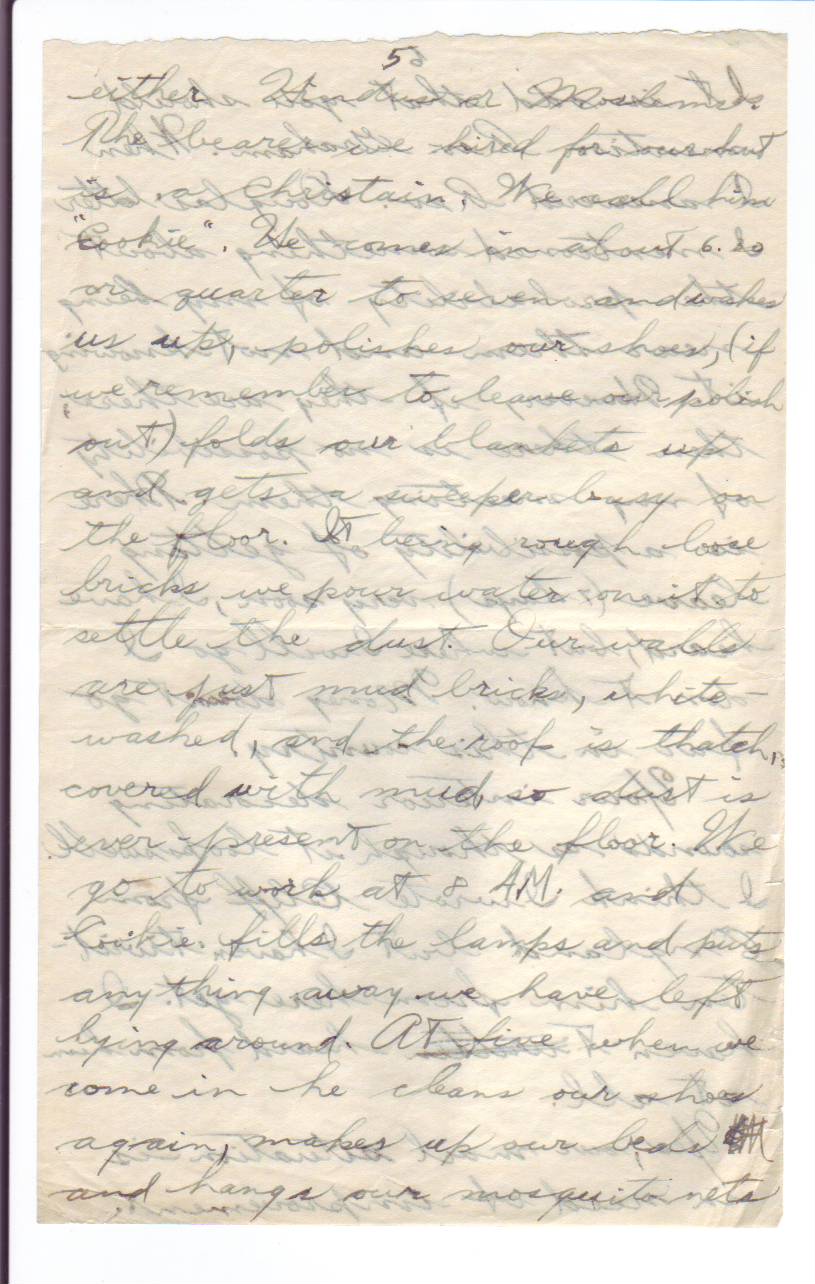 5
either Hindus or Moslems.
The bearer we hired for our hut
is a Christain. We call him
"Cookie". He comes in about 6.30
or quarter to seven and wakes
us up, polishes our shoes, (if
we remember to leave our polish
out) folds our blankets up
and gets a sweeper busy on
the floor. It being rough loose
bricks, we pour water on it to
settle the dust. Our walls
are just mud bricks, white-
washed, and the roof is thatch,
covered with mud, so dust is
ever-present on the floor. We
go to work at 8 A.M. and
Cookie fills the lamps and puts
anything away we have left
lying around. At five when we
come in he cleans our shoes
again, makes up our beds
and hangs our mosquito nets